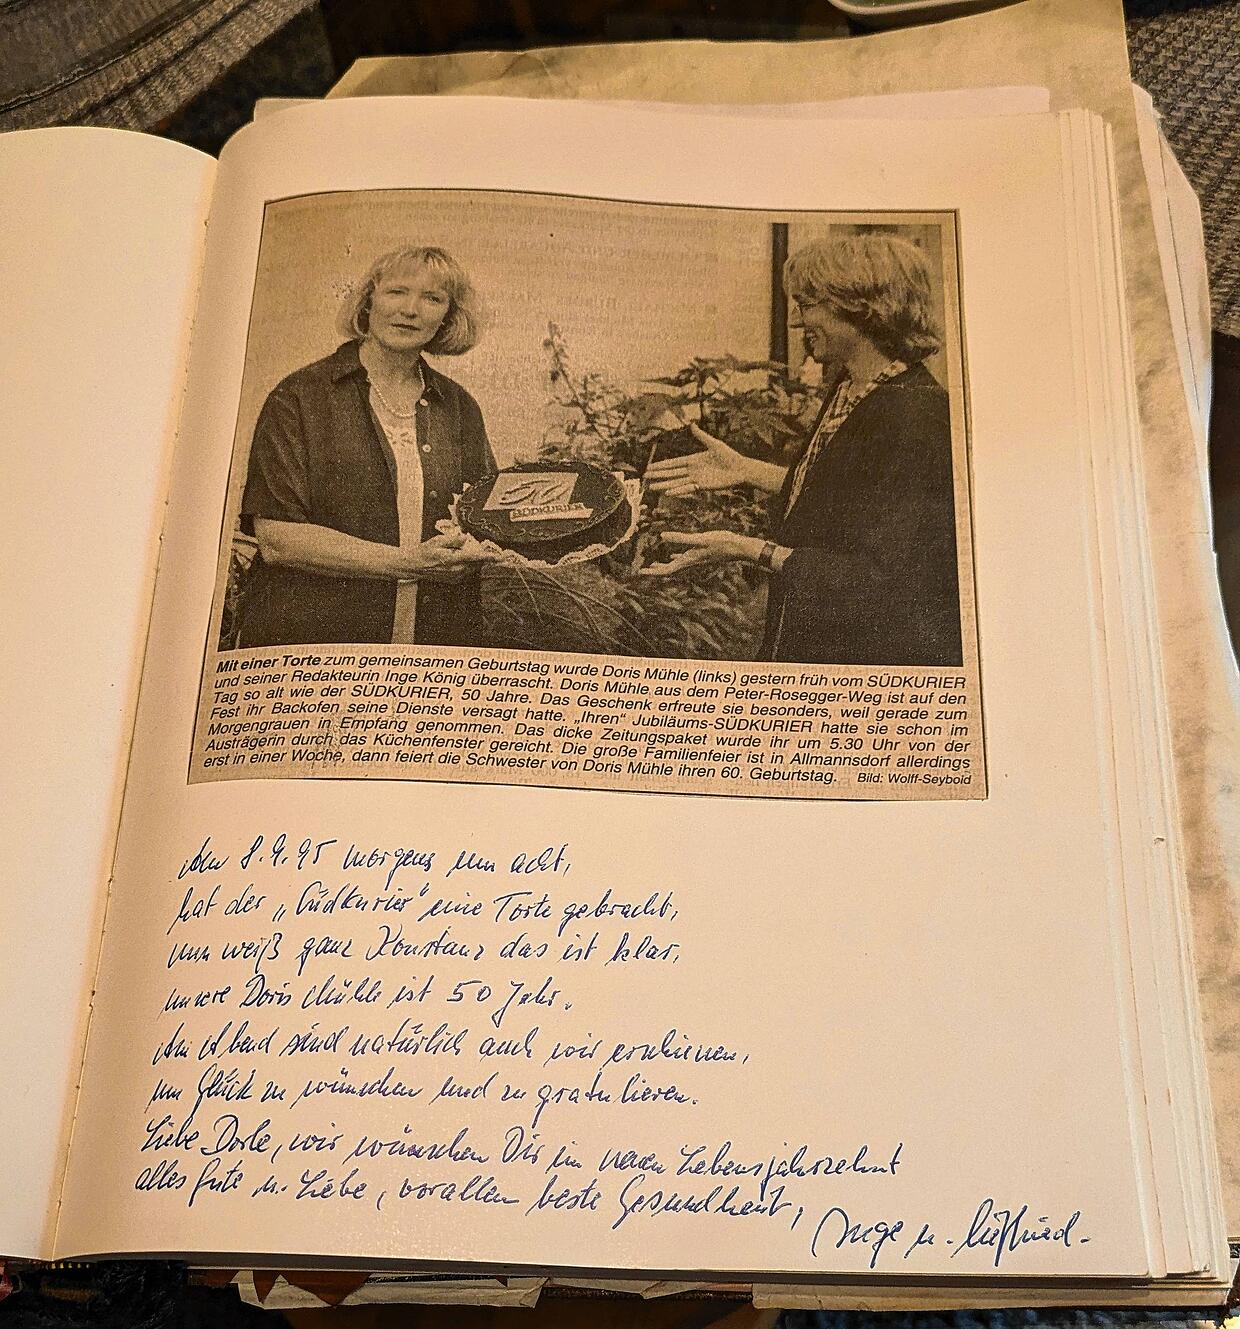 50
SÜDKURIER
Mit einer Torte zum gemeinsamen Geburtstag wurde Doris Mühle (links) gestern früh vom SÜDKURIER
und seiner Redakteurin Inge König überrascht. Doris Mühle aus dem Peter-Rosegger-Weg ist auf den
Tag so alt wie der SÜDKURIER, 50 Jahre. Das Geschenk erfreute sie besonders, weil gerade zum
Fest ihr Backofen seine Dienste versagt hatte. „Ihren“ Jubiläums-SÜDKURIER hatte sie schon im
Morgengrauen in Empfang genommen. Das dicke Zeitungspaket wurde ihr um 5.30 Uhr von der
Austrägerin durch das Küchenfenster gereicht. Die große Familienfeier ist in Allmannsdorf allerdings
erst in einer Woche, dann feiert die Schwester von Doris Mühle ihren 60. Geburtstag. Bild: Wolff-Seybold
Am 8.9.95 morgens um acht,
hat der „Südkurier“ eine Torte gebracht,
nun weiß ganz Konstanz das ist klar,
unsere Doris Mühle ist 50 Jahr.
Am Abend sind natürlich auch wir erschienen,
um Glück zu wünschen und zu gratulieren.
Liebe Dorle, wir wünschen Dir im neuen Lebensjahrzehnt
alles Gute u. Liebe, vorallem beste Gesundheit,
Inge u.